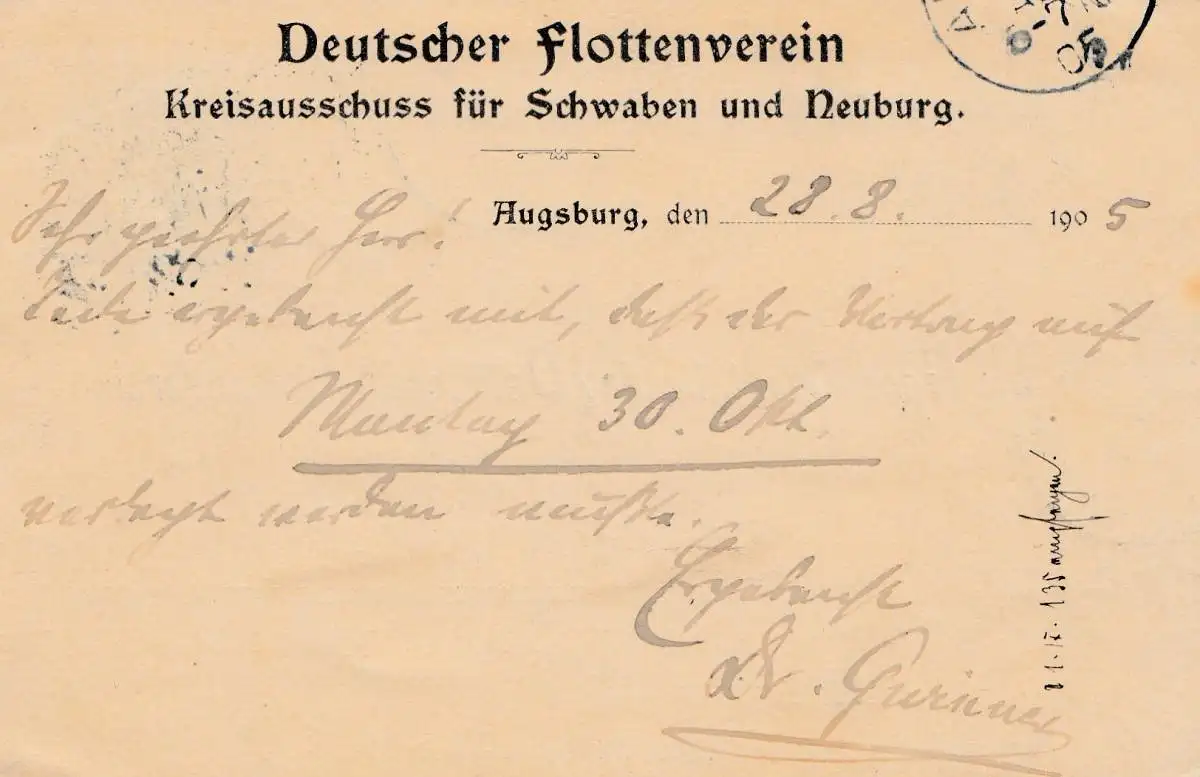 Deutscher Flottenverein
Kreisausschuss für Schwaben und Neuburg.
Augsburg, den 28. 8. 1905
Sehr geehrter Herr!
Teile ergebenst mit, daß der Vortrag auf
Montag 30. Okt.
verlegt werden mußte.
Ergebenst
Dr.